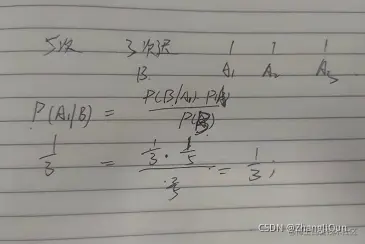 5次 3次 1 1 1
B A₁ A₂ A₃
P(A₁/B) = P(B/A₁)·P(A₁) / P(B)
1/3 = (1/3 · 1/5) / = 1/3;
CSDN @ZhangJiQun.